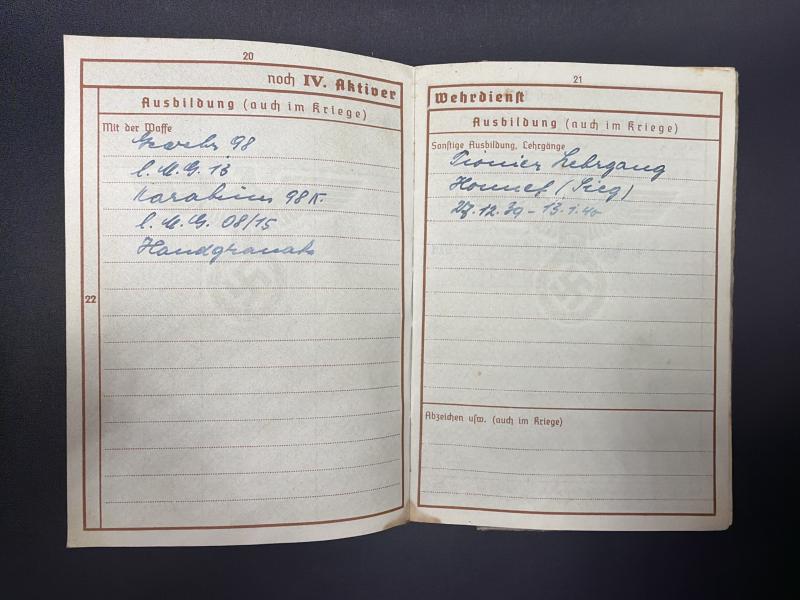 20
noch IV. Aktiver
Ausbildung (auch im Kriege)
Mit der Waffe
Gewehr 98
l. M.G. 13
Karabiner 98 K.
l. M.G. 08/15
Handgranate
22
21
Wehrdienst
Ausbildung (auch im Kriege)
Sonstige Ausbildung, Lehrgänge
Pionier Lehrgang
Honnef (Sieg)
27.12.39 - 13.1.40
Abzeichen usw. (auch im Kriege)